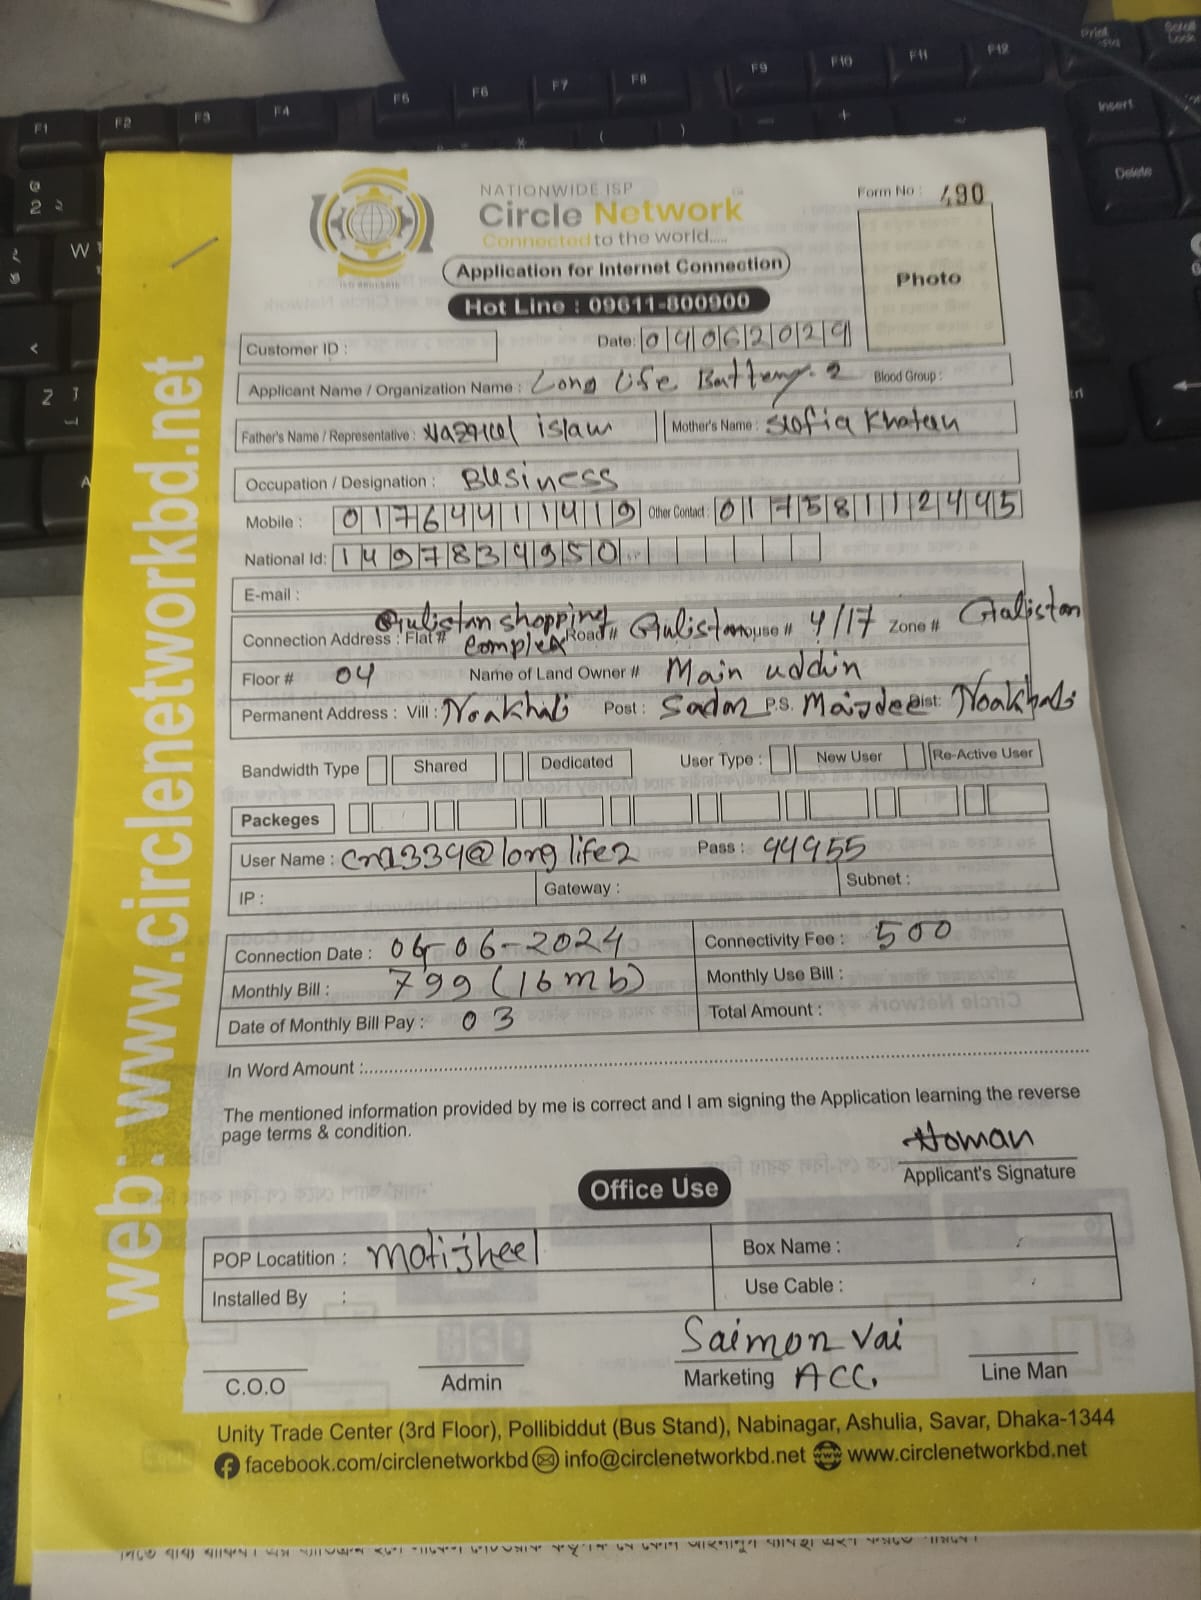 NATIONWIDE ISP
Circle Network
Connected to the world.....
Form No : 490
Application for Internet Connection
Photo
Hot Line : 09611-800900
Customer ID :
Date: 04062024
Applicant Name / Organization Name : Long Life Battery-2 Blood Group :
Father's Name / Representative : Nazrul islam Mother's Name : Sofia Khatun
Occupation / Designation : Business
Mobile : 01764411419 Other Contact : 01758112445
National Id: 1497834950
E-mail :
Connection Address : Flat # Gulistan shopping complex Road # Gulistan House # 4/17 Zone # Galistan
Floor # 04 Name of Land Owner # Main uddin
Permanent Address : Vill : Noakhali Post : Sadar P.S. Maijdee Dist: Noakhali
Bandwidth Type Shared Dedicated User Type : New User Re-Active User
Packeges
User Name : cn1334@longlife2 Pass : 44955
IP : Gateway : Subnet :
Connection Date : 06-06-2024 Connectivity Fee : 500
Monthly Bill : 799 (16mb) Monthly Use Bill :
Date of Monthly Bill Pay : 03 Total Amount :
In Word Amount :
The mentioned information provided by me is correct and I am signing the Application learning the reverse
page terms & condition.
Homan
Applicant's Signature
Office Use
POP Locatition : Motijheel Box Name :
Installed By : Use Cable :
Saimon Vai
C.O.O Admin Marketing ACC. Line Man
Unity Trade Center (3rd Floor), Pollibiddut (Bus Stand), Nabinagar, Ashulia, Savar, Dhaka-1344
facebook.com/circlenetworkbd info@circlenetworkbd.net www.circlenetworkbd.net
web: www.circlenetworkbd.net